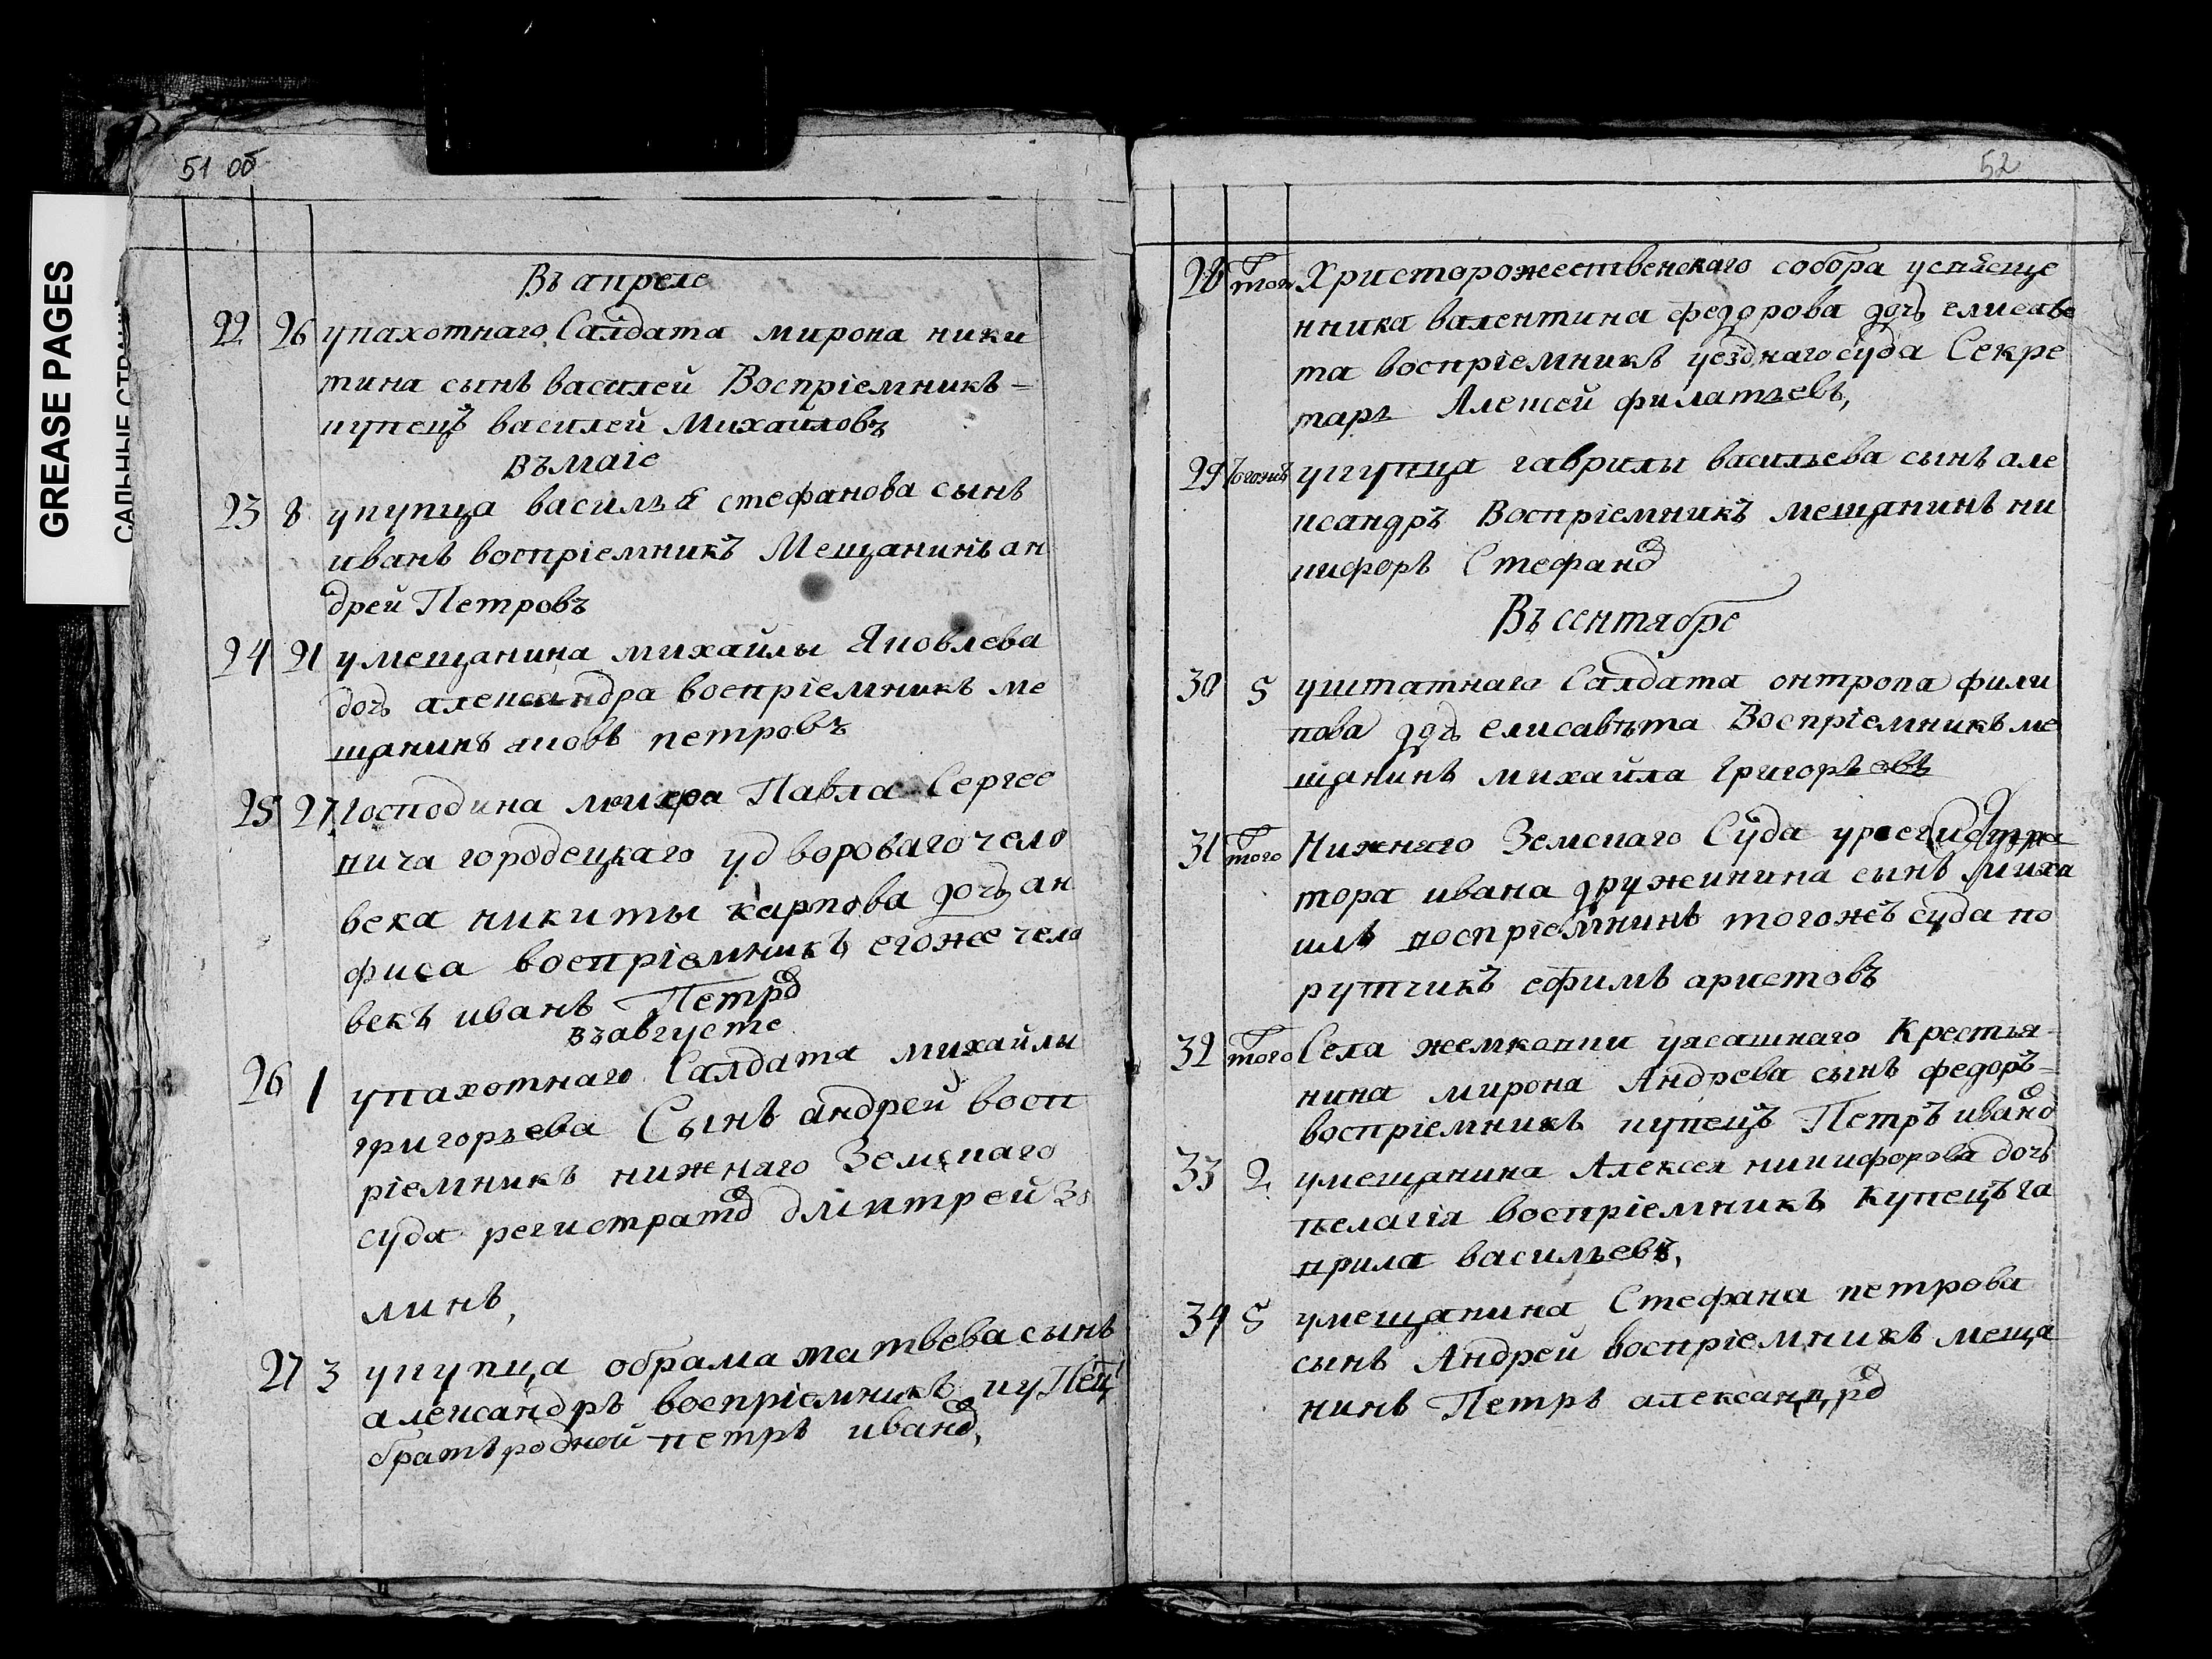 GREASE PAGES
51 об
Въ апреле
22 26 упахотнаго Салдата мирона ники
тина сынъ василей Воспріемникъ -
купецъ василей Михайловъ
Въ маіе
23 8 укупца васильѣ стефанова сынъ
иванъ воспріемникъ Мещанинъ ан
дрей Петровъ
24 21 умещанина михайлы Яковлева
дочь александра воспріемникъ ме
щанинъ яковъ петровъ
25 27 Господина Павла Сергее
вича городецкаго удвороваго чело
века никиты карпова дочь ан
фиса воспріемникъ егоже чело
векъ иванъ Петро
въ августе
26 1 упахотнаго Салдата михайлы
григорьева Сынъ андрей восп
ріемникъ нижнаго Земскаго
суда регистрато дмитрей за
линъ,
27 3 укупца обрама матвева сынъ
александръ воспріемникъ купец
братъ родной петръ ивано,
52
28 того Христорожественскаго собора усвяще
нника валентина федорова дочь елисаве
та воспріемникъ уезднаго суда Секре
тарь Алексей филатьевъ,
29 укупца гаврилы васильева сынъ але
ксандръ Воспріемникъ мещанинъ ни
кифоръ Стефано
Въ сентябре
30 5 уштатнаго Салдата онтропа фили
пова дочь елисавѣта Воспріемникъ ме
щанинъ михайла Григорьевъ
31 того Нижняго Земскаго Суда урегистра
тора ивана дружинина сынъ Миха
илъ воспріемникъ тогожъ суда по
рутчикъ ефимъ аристовъ
32 того Села жемконки уясашнаго Крестья-
нина мирона Андрева сынъ федоръ -
воспріемникъ купецъ Петръ ивано
33 2 умещанина Алексея никифорова дочь
пелагія воспріемникъ купецъ га
врила васильевъ,
34 5 умещанина Стефана петрова
сынъ Андрей воспріемникъ меща
нинъ Петръ александро